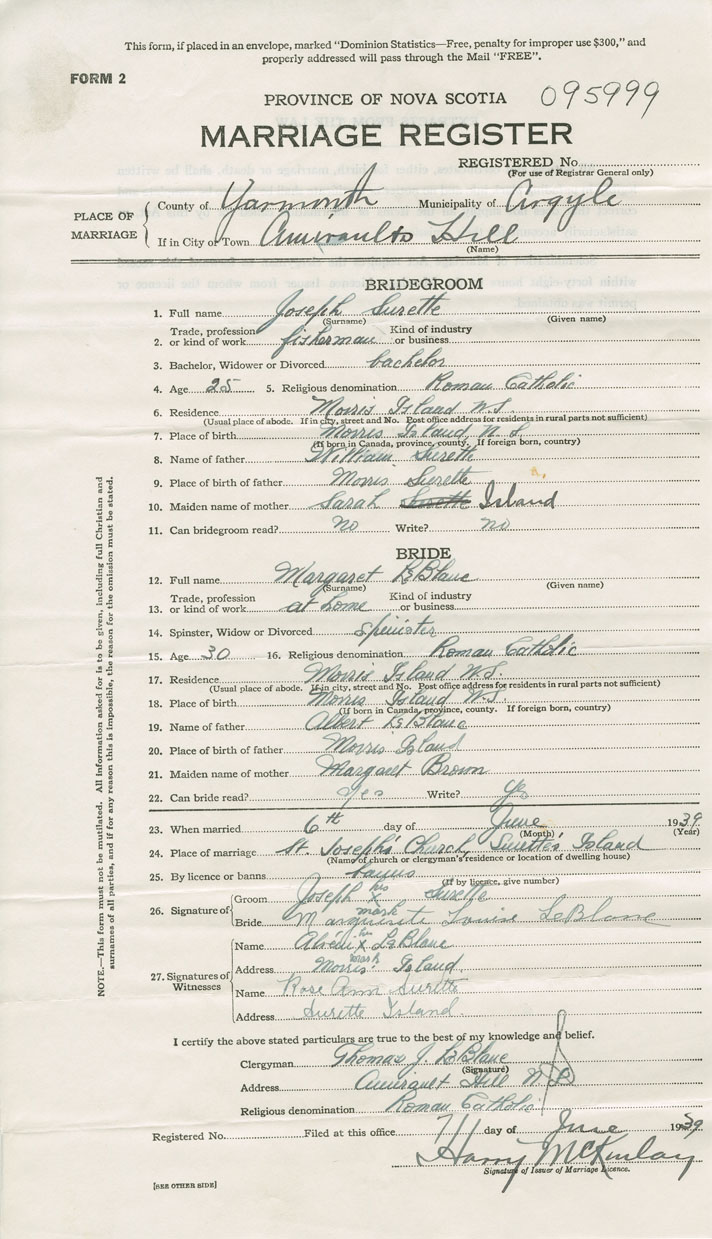 This form, if placed in an envelope, marked "Dominion Statistics—Free, penalty for improper use $300," and
properly addressed will pass through the Mail "FREE".
FORM 2
PROVINCE OF NOVA SCOTIA 095999
MARRIAGE REGISTER
REGISTERED No.
(For use of Registrar General only)
PLACE OF MARRIAGE
County of Yarmouth Municipality of Argyle
If in City or Town Amiraults Hill
(Name)
BRIDEGROOM
1. Full name Joseph Surette
(Surname) (Given name)
2. Trade, profession or kind of work fisherman Kind of industry or business
3. Bachelor, Widower or Divorced bachelor
4. Age 25 5. Religious denomination Roman Catholic
6. Residence Morris Island N.S.
(Usual place of abode. If in city, street and No. Post office address for residents in rural parts not sufficient)
7. Place of birth Morris Island, N.S.
(If born in Canada, province, county. If foreign born, country)
8. Name of father William Surette
9. Place of birth of father Morris Surette
10. Maiden name of mother Sarah Surette Island
11. Can bridegroom read? no Write? no
BRIDE
12. Full name Margaret LeBlanc
(Surname) (Given name)
13. Trade, profession or kind of work at home Kind of industry or business
14. Spinster, Widow or Divorced spinster
15. Age 30 16. Religious denomination Roman Catholic
17. Residence Morris Island N.S.
(Usual place of abode. If in city, street and No. Post office address for residents in rural parts not sufficient)
18. Place of birth Morris Island N.S.
(If born in Canada, province, county. If foreign born, country)
19. Name of father Albert LeBlanc
20. Place of birth of father Morris Island
21. Maiden name of mother Margaret Brown
22. Can bride read? yes Write? yes
23. When married 6th day of June 1939
(Month) (Year)
24. Place of marriage St. Joseph's Church, Surette's Island
(Name of church or clergyman's residence or location of dwelling house)
25. By licence or banns banns
(If by licence, give number)
26. Signature of Groom Joseph his x mark Surette
Bride Marguerite Louise LeBlanc
27. Signatures of Witnesses
Name x LeBlanc
mark
Address Morris Island
Name Rose Ann Surette
Address Surette Island
I certify the above stated particulars are true to the best of my knowledge and belief.
Clergyman Thomas J. LeBlanc
(Signature)
Address Amirault Hill N.S.
Religious denomination Roman Catholic
Registered No. Filed at this office day of June 1939
Harry McKinlay
Signature of Issuer of Marriage Licence.
[SEE OTHER SIDE]
NOTE.—This form must not be mutilated. All information asked for is to be given, including full Christian and
surnames of all parties, and if for any reason this is impossible, the reason for the omission must be stated.